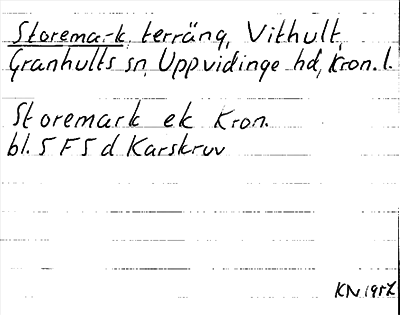 Storemark, terräng, Vithult,
Granhults sn, Uppvidinge hd, Kron. l.
Storemark ek Kron.
bl. 5 F 5 d Karskruv
KN 1957